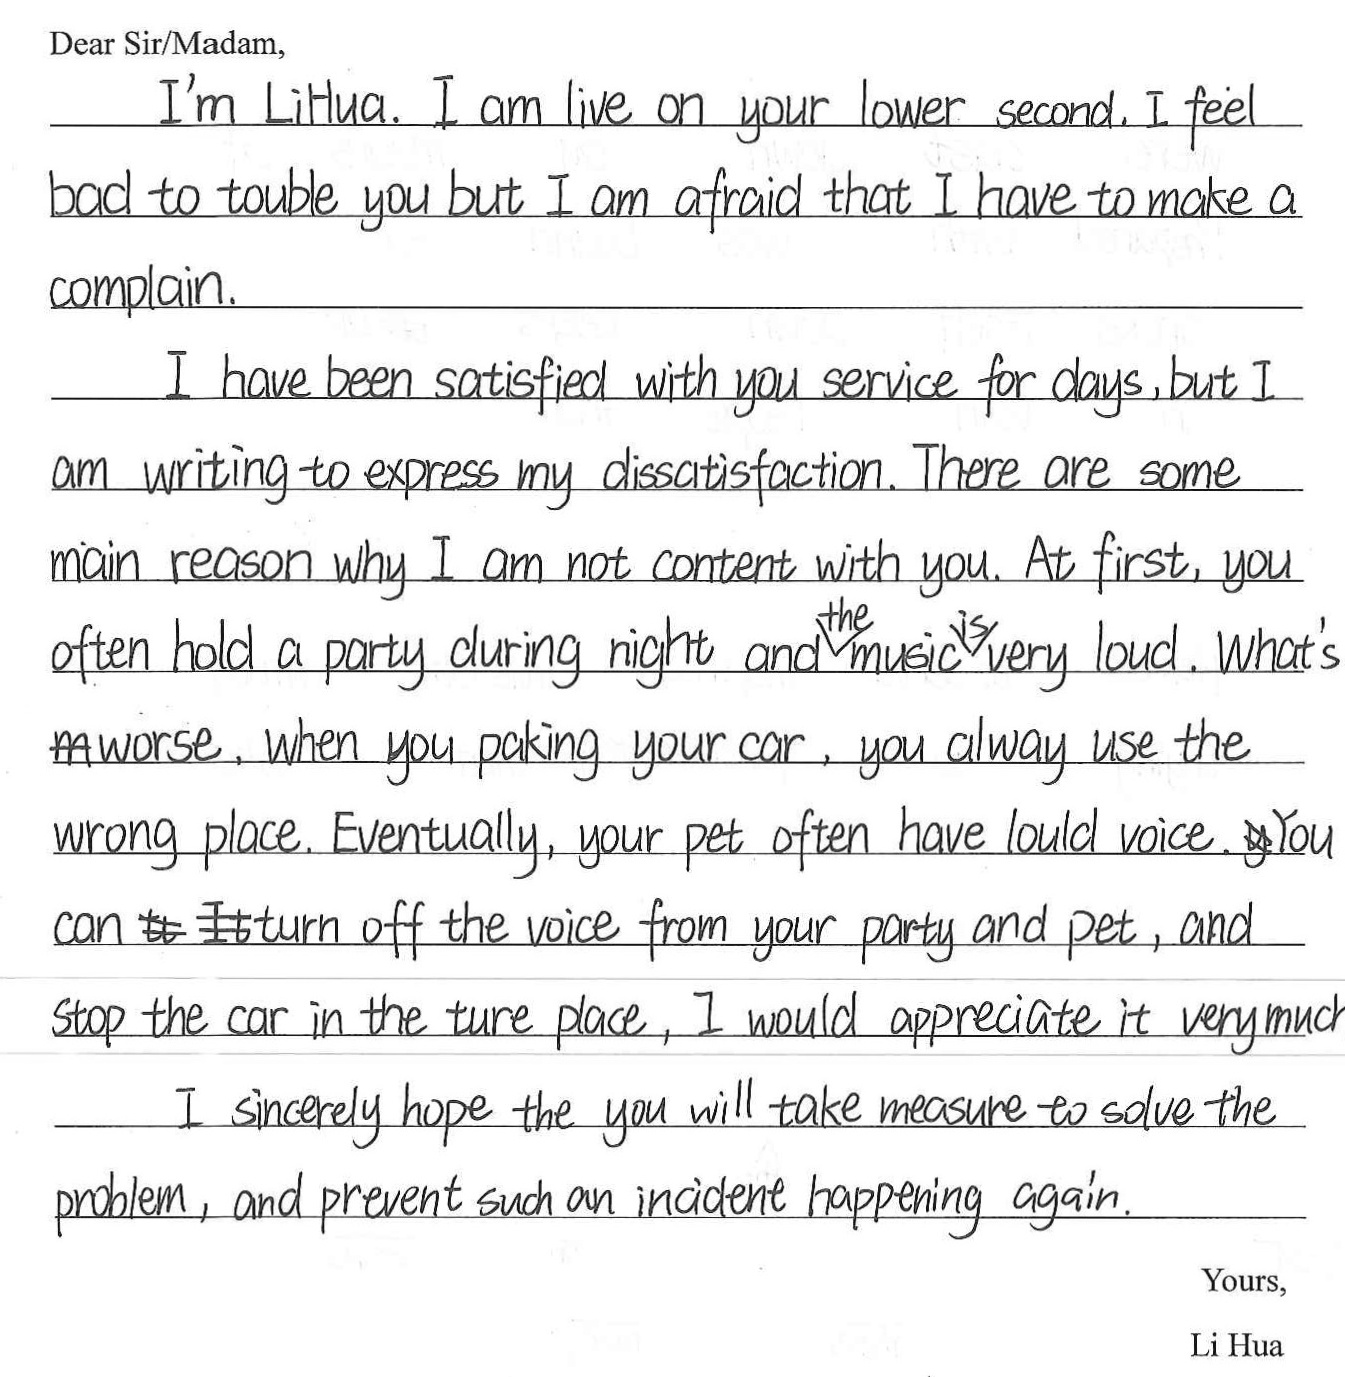 Dear Sir/Madam,
I'm LiHua. I am live on your lower second. I feel
bad to touble you but I am afraid that I have to make a
complain.
I have been satisfied with you service for days, but I
am writing to express my dissatisfaction. There are some
main reason why I am not content with you. At first, you
often hold a party during night and the music is very loud. What's
worse, when you paking your car, you alway use the
wrong place. Eventually, your pet often have lould voice. You
can turn off the voice from your party and pet, and
stop the car in the ture place, I would appreciate it very much
I sincerely hope the you will take measure to solve the
problem, and prevent such an incident happening again.
Yours,
Li Hua